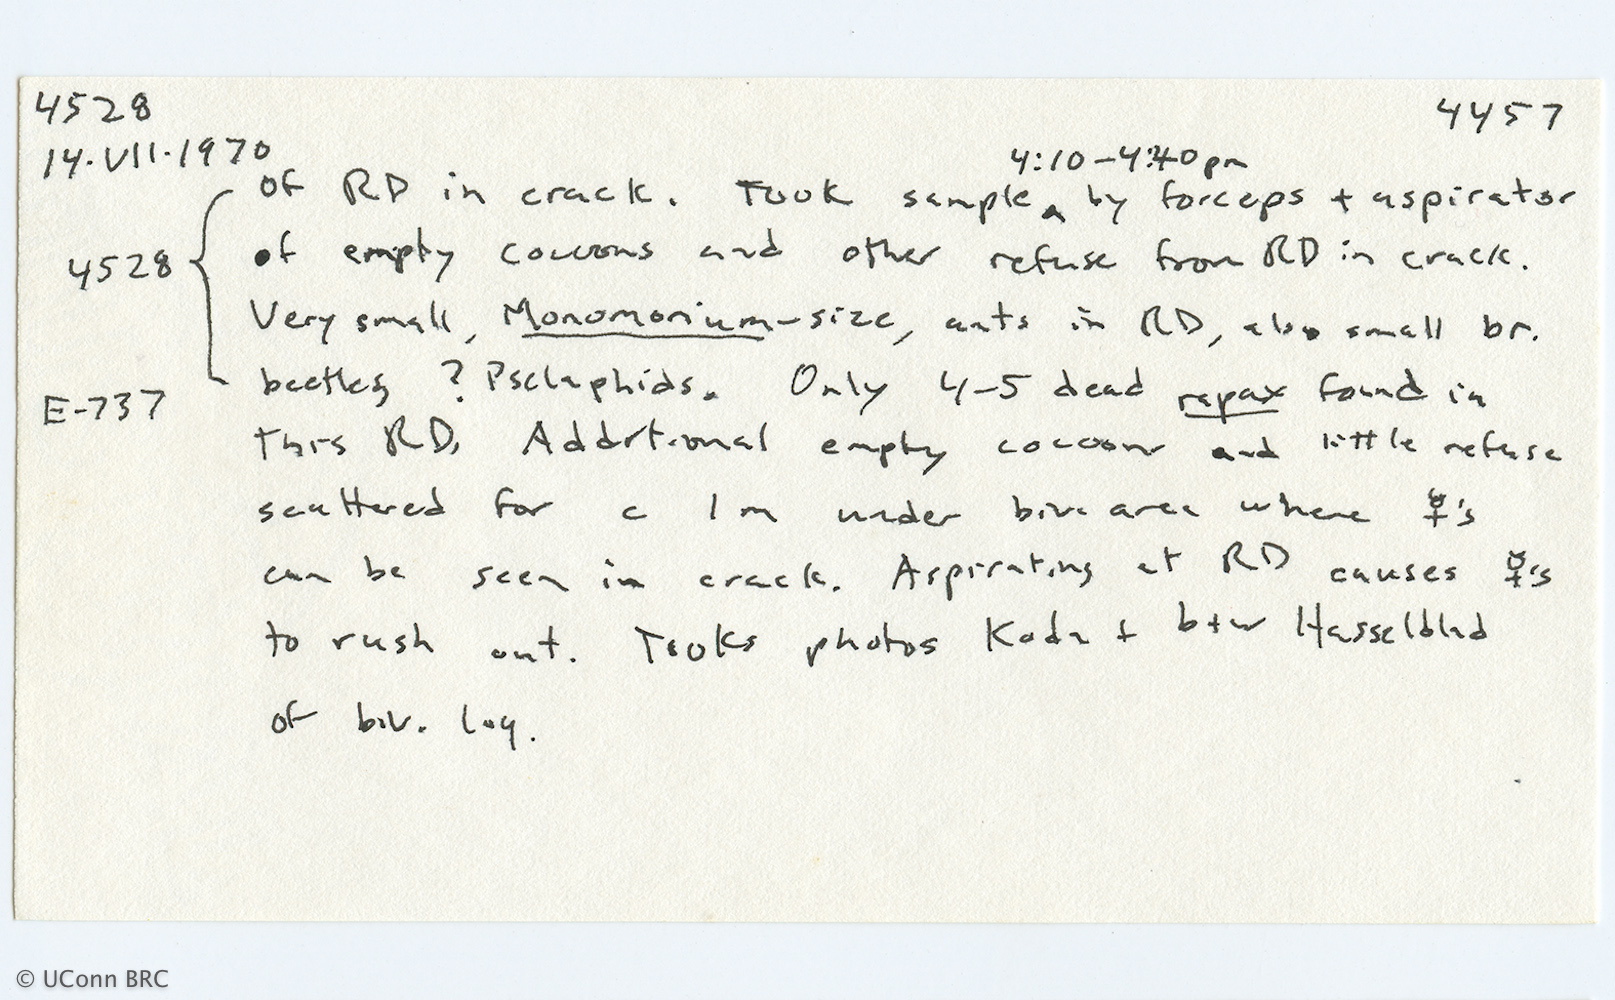 4528
4457
14·VII·1970
4:10-4:40pm
of RD in crack. Took sample ‸ by forceps + aspirator
4528
of empty cocoons and other refuse from RD in crack.
Very small, Monomorium-size, ants in RD, also small br.
beetles, ? Pselaphids. Only 4-5 dead rapax found in
E-737
this RD. Additional empty cocoons and little refuse
scattered for c 1m under biv. area where ☿'s
can be seen in crack. Aspirating at RD causes ☿'s
to rush out. Tooks photos Koda + b+w Hasselblad
of biv. log.
© UConn BRC